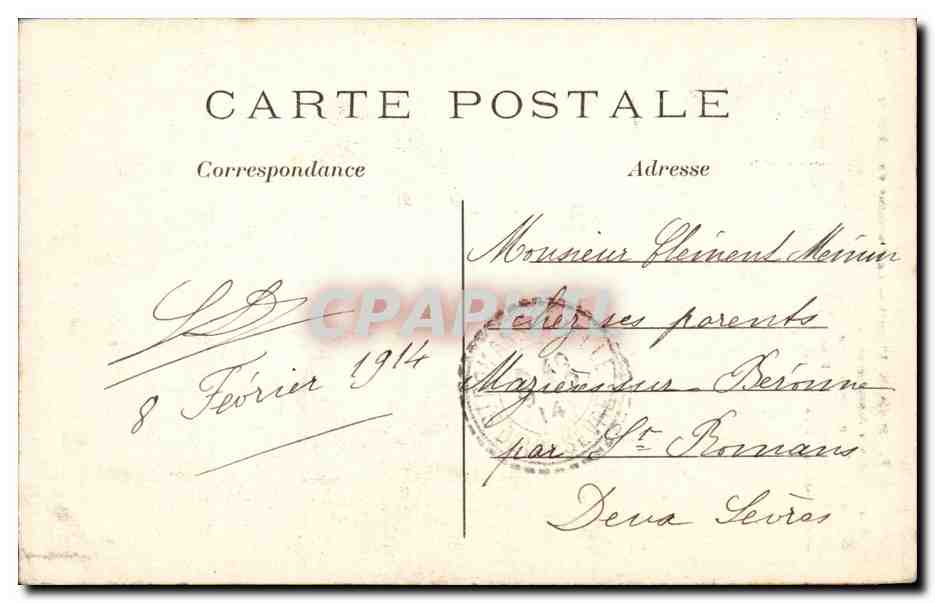 CARTE POSTALE
Correspondance
Adresse
Monsieur Clément
chez ses parents
Mazières sur Béronne
par St Romans
Deux Sèvres
8 Février 1914
CPARAMA
14